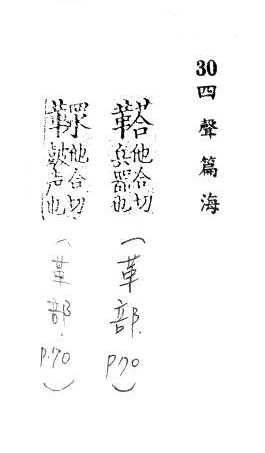 30四聲篇海
鞳他合切兵器也(革部.P70)
他合切鼓声也(革部.P.70)